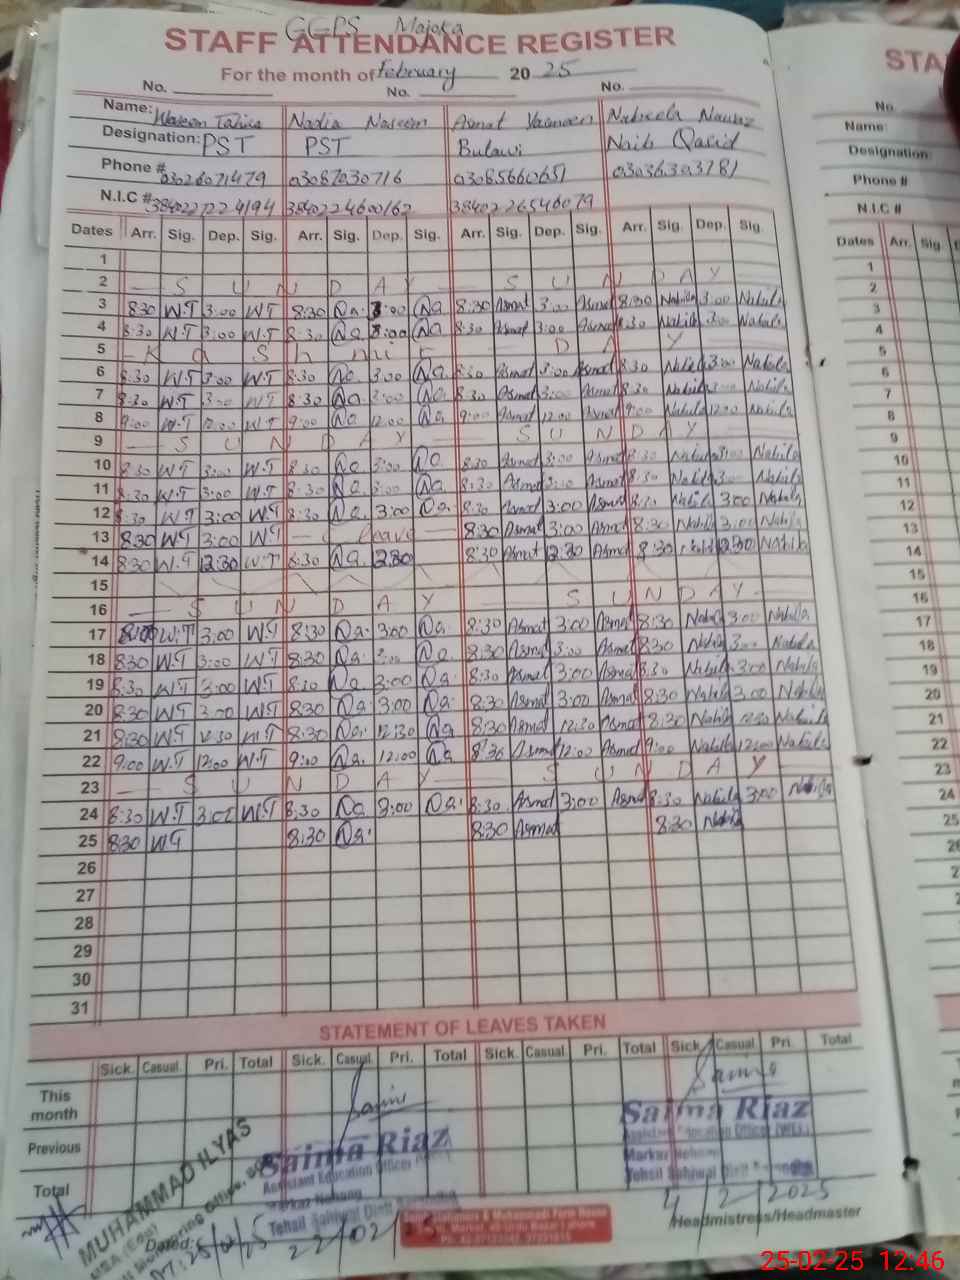 GGPS Majoka
STAFF ATTENDANCE REGISTER
STA
For the month of February 2025
No. No. No.
No.
Name: Waseem Tahira Nadia Naseem Asmat Yasmeen Nabeela Nawaz
Name:
Designation: PST PST Bulawi Naib Qasid
Designation:
Phone # 03026071479 03087030716 03085660651 03036303781
Phone #
N.I.C # 3840227224194 3840224600162 3840226546079
N.I.C #
Dates Arr. Sig. Dep. Sig. Arr. Sig. Dep. Sig. Arr. Sig. Dep. Sig. Arr. Sig. Dep. Sig.
Dates Arr. Sig.
1
2 SUNDAY SUNDAY
3 8:30 W.T 3:00 W.T 8:30 Na. 3:00 Na 8:30 Asmat 3:00 Asmat 8:30 Nabila 3:00 Nabila
4 8:30 W.T 3:00 W.T 8:30 Na 3:00 Na 8:30 Asmat 3:00 Asmat 8:30 Nabila 3:00 Nabila
5 Kashmir DAY
6 8:30 W.T 3:00 W.T 8:30 Na 3:00 Na 8:30 Asmat 3:00 Asmat 8:30 Nabila 3:00 Nabila
7 8:30 W.T 3:00 W.T 8:30 Na 3:00 Na 8:30 Asmat 3:00 Asmat 8:30 Nabila 3:00 Nabila
8 9:00 W.T 12:00 W.T 9:00 Na 12:00 Na 9:00 Asmat 12:00 Asmat 9:00 Nabila 12:00 Nabila
9 SUNDAY SUNDAY
10 8:30 W.T 3:00 W.T 8:30 Na 3:00 Na 8:30 Asmat 3:00 Asmat 8:30 Nabila 3:00 Nabila
11 8:30 W.T 3:00 W.T 8:30 Na 3:00 Na 8:30 Asmat 3:00 Asmat 8:30 Nabila 3:00 Nabila
12 8:30 W.T 3:00 W.T 8:30 Na 3:00 Na 8:30 Asmat 3:00 Asmat 8:30 Nabila 3:00 Nabila
13 8:30 W.T 3:00 W.T leave 8:30 Asmat 3:00 Asmat 8:30 Nabila 3:00 Nabila
14 8:30 W.T 12:30 W.T 8:30 Na 8:30 Asmat 12:30 Asmat 8:30 Nabila 12:30 Nabila
15
16 SUNDAY SUNDAY
17 W.T 3:00 W.T 8:30 Na. 3:00 Na. 8:30 Asmat 3:00 Asmat 8:30 Nabila 3:00 Nabila
18 8:30 W.T 3:00 W.T 8:30 Na. 3:00 Na 8:30 Asmat 3:00 Asmat 8:30 Nabila 3:00 Nabila
19 8:30 W.T 3:00 W.T 8:30 Na 3:00 Na. 8:30 Asmat 3:00 Asmat 8:30 Nabila 3:00 Nabila
20 8:30 W.T 3:00 W.T 8:30 Na. 3:00 Na. 8:30 Asmat 3:00 Asmat 8:30 Nabila 3:00 Nabila
21 8:30 W.T 12:30 W.T 8:30 Na. 12:30 Na 8:30 Asmat 12:30 Asmat 8:30 Nabila 12:30 Nabila
22 9:00 W.T 12:00 W.T 9:00 Na. 12:00 Na 8:30 Asmat 12:00 Asmat 9:00 Nabila 12:00 Nabila
23 SUNDAY SUNDAY
24 8:30 W.T 3:00 W.T 8:30 Na 3:00 Na. 8:30 Asmat 3:00 Asmat 8:30 Nabila 3:00 Nabila
25 8:30 W.T 8:30 Na. 8:30 Asmat 8:30 Nabila
26
27
28
29
30
31
1
2
3
4
5
6
7
8
9
10
11
12
13
14
15
16
17
18
19
20
21
22
23
24
25
STATEMENT OF LEAVES TAKEN
Sick. Casual. Pri. Total Sick. Casual. Pri. Total Sick. Casual. Pri. Total Sick. Casual. Pri. Total
This month
Previous
Total
Saima Riaz
Assistant Education Officer
Markaz Nehang
Tehsil Sahiwal Distt
22/02/25
Saima Riaz
Assistant Education Officer
Markaz Nehang
Tehsil Sahiwal Distt
4/2/2025
MUHAMMAD ILYAS
Dated:
DT: 25/02/25
Headmistress/Headmaster
25-02-25 12:46